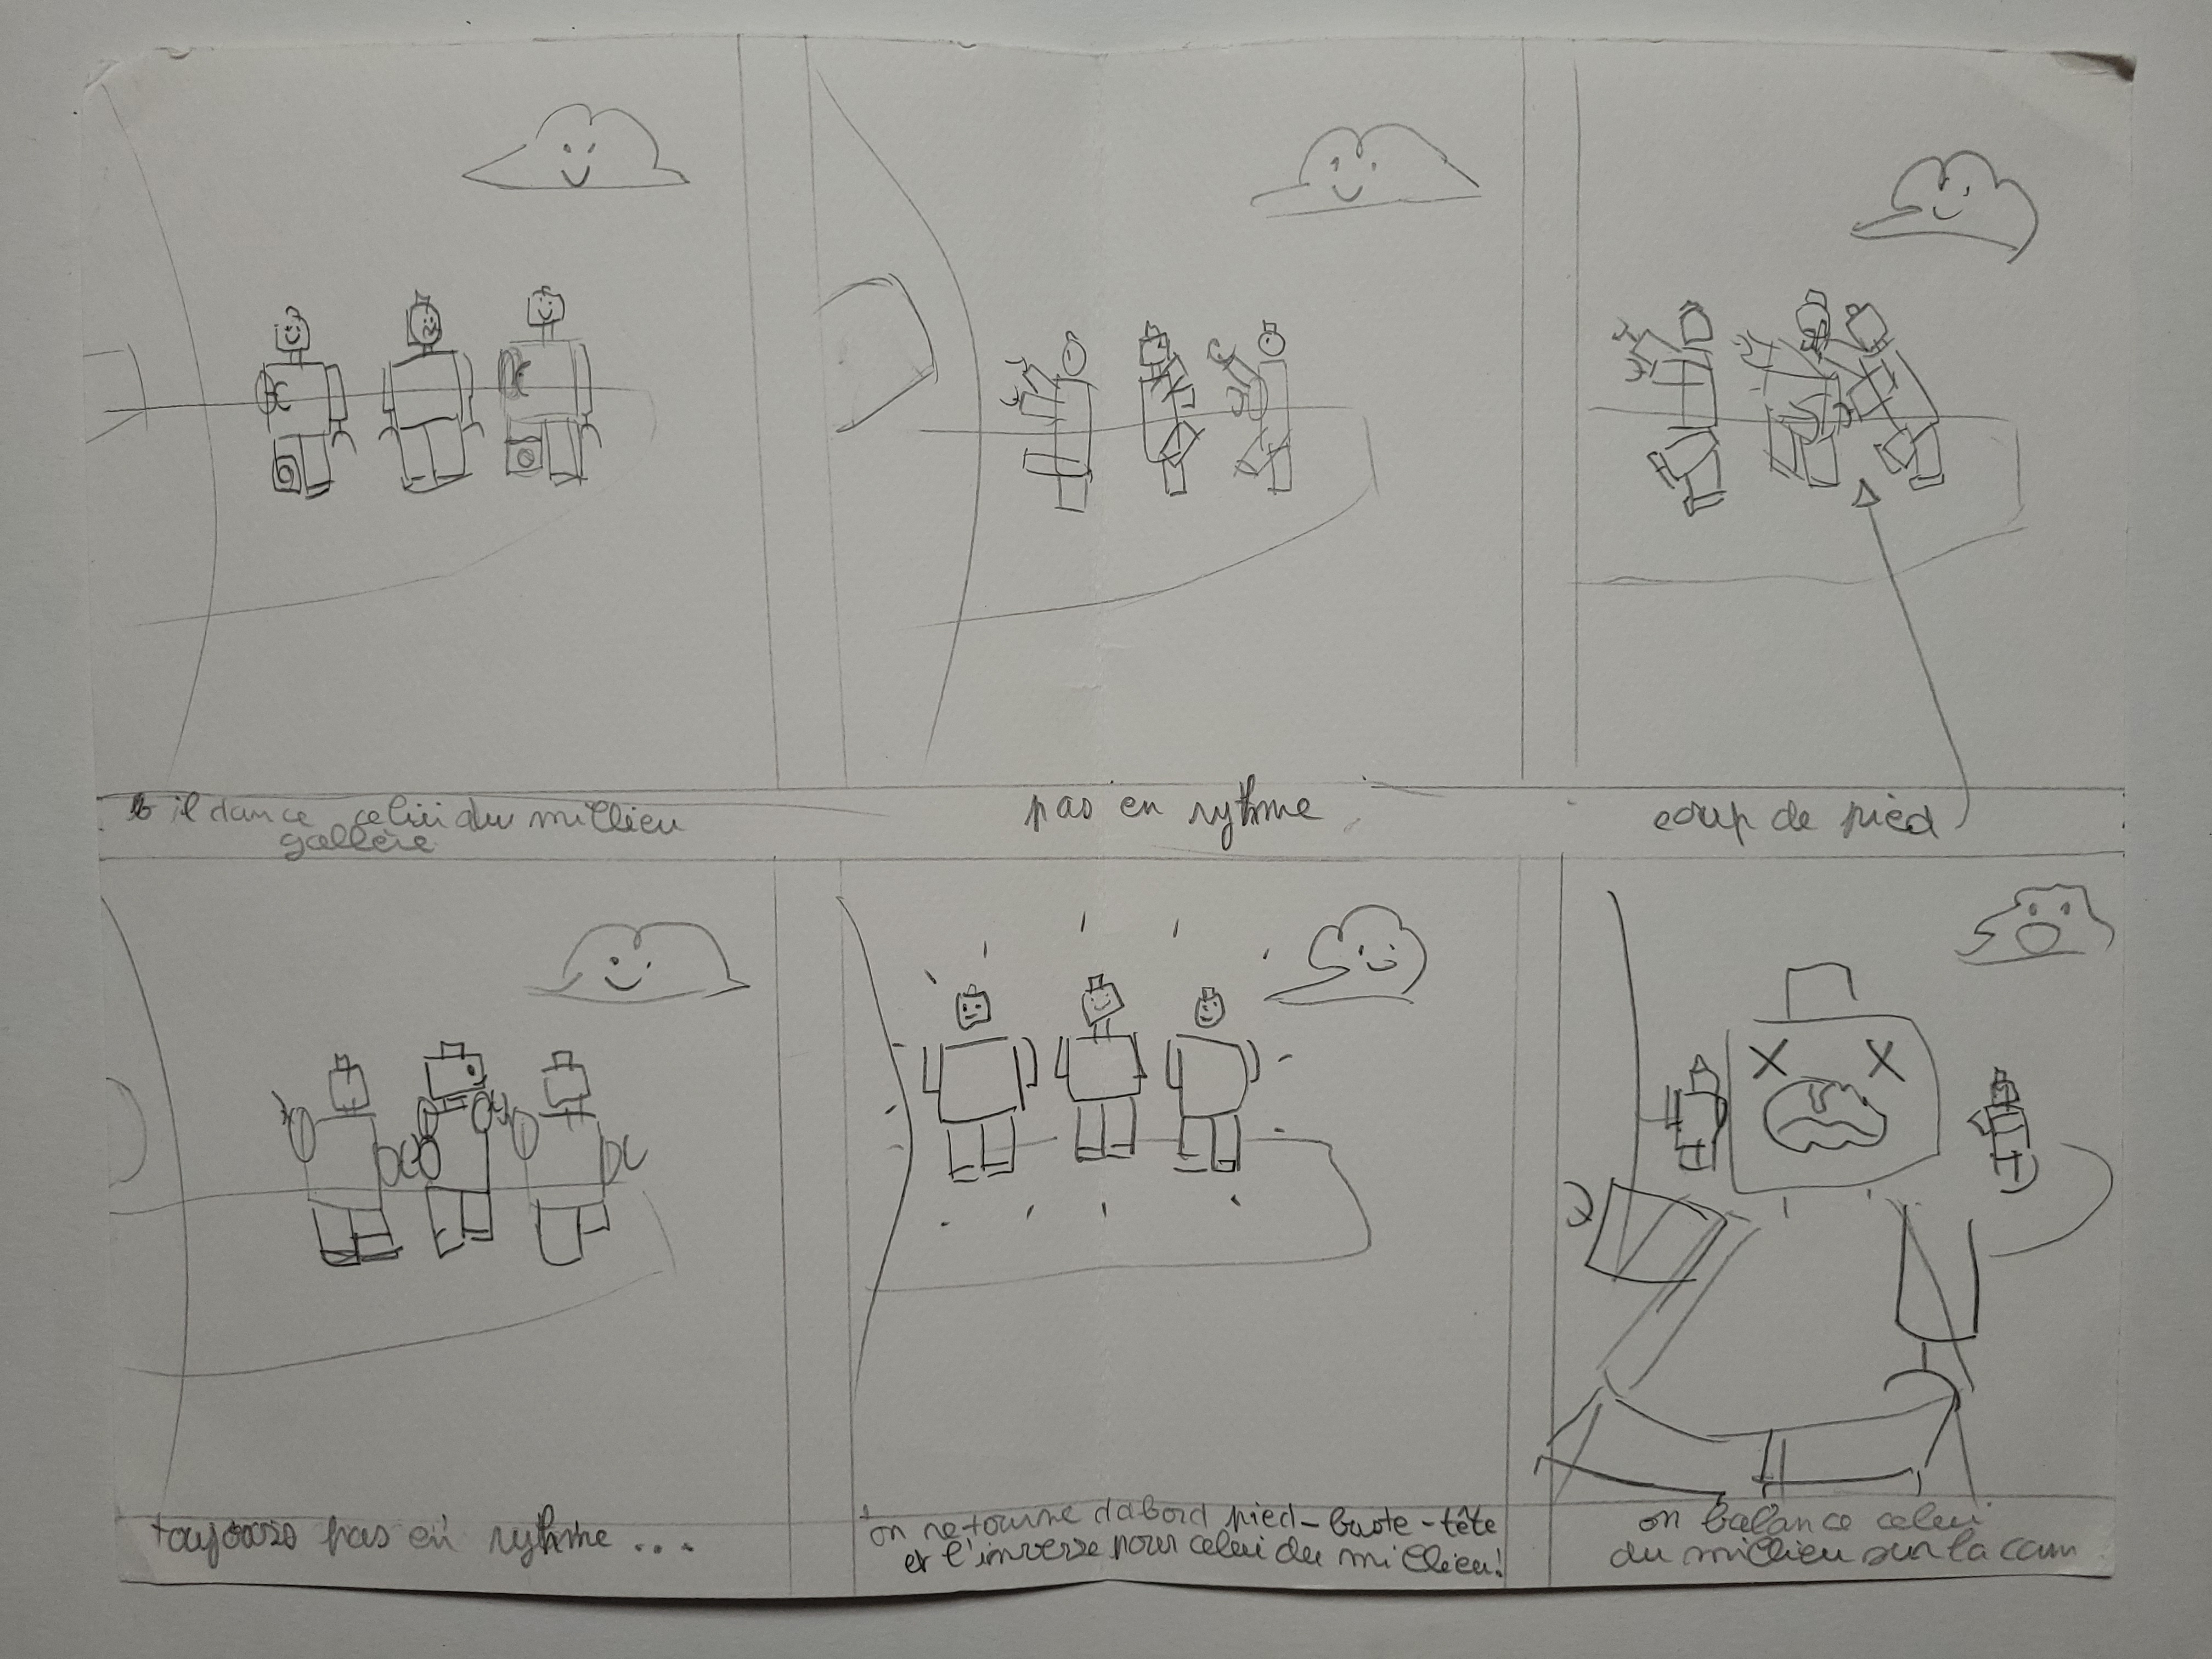 il dance celui du millieu
gallère
pas en rythme
coup de pied
toujours pas en rythme...
on retourne dabord pied-buste-tête
et l'inverse pour celui du millieu!
on balance celui
du millieu sur la cam